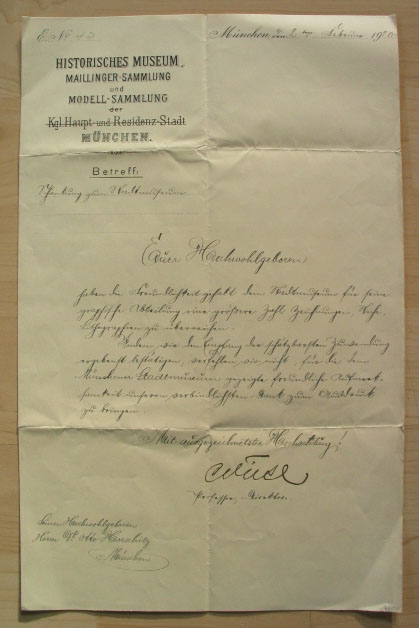 E. № 42
München, den 2. ten Februar 19
HISTORISCHES MUSEUM,
MAILLINGER-SAMMLUNG
und
MODELL-SAMMLUNG
der
Kgl. Haupt- und Residenz-Stadt
MÜNCHEN.
Betreff:
Schenkung zum Stadtmuseum
Euer Hochwohlgeboren
haben die Freundlichkeit gehabt dem Stadtmuseum für seine
graphische Abteilung eine größere Zahl Zeichnungen, Stiche,
Lithographien zu überweisen.
Indem wir den Empfang der schätzbaren Zuwendung
ergebenst bestätigen, verfehlen wir nicht, für die dem
Münchener Stadtmuseum gezeigte freundliche Aufmerk-
samkeit unseren verbindlichsten Dank zum Ausdruck
zu bringen.
Mit ausgezeichneter Hochachtung!
Professor, Direktor.
Seiner Hochwohlgeboren
Herrn Dr. Otto
München